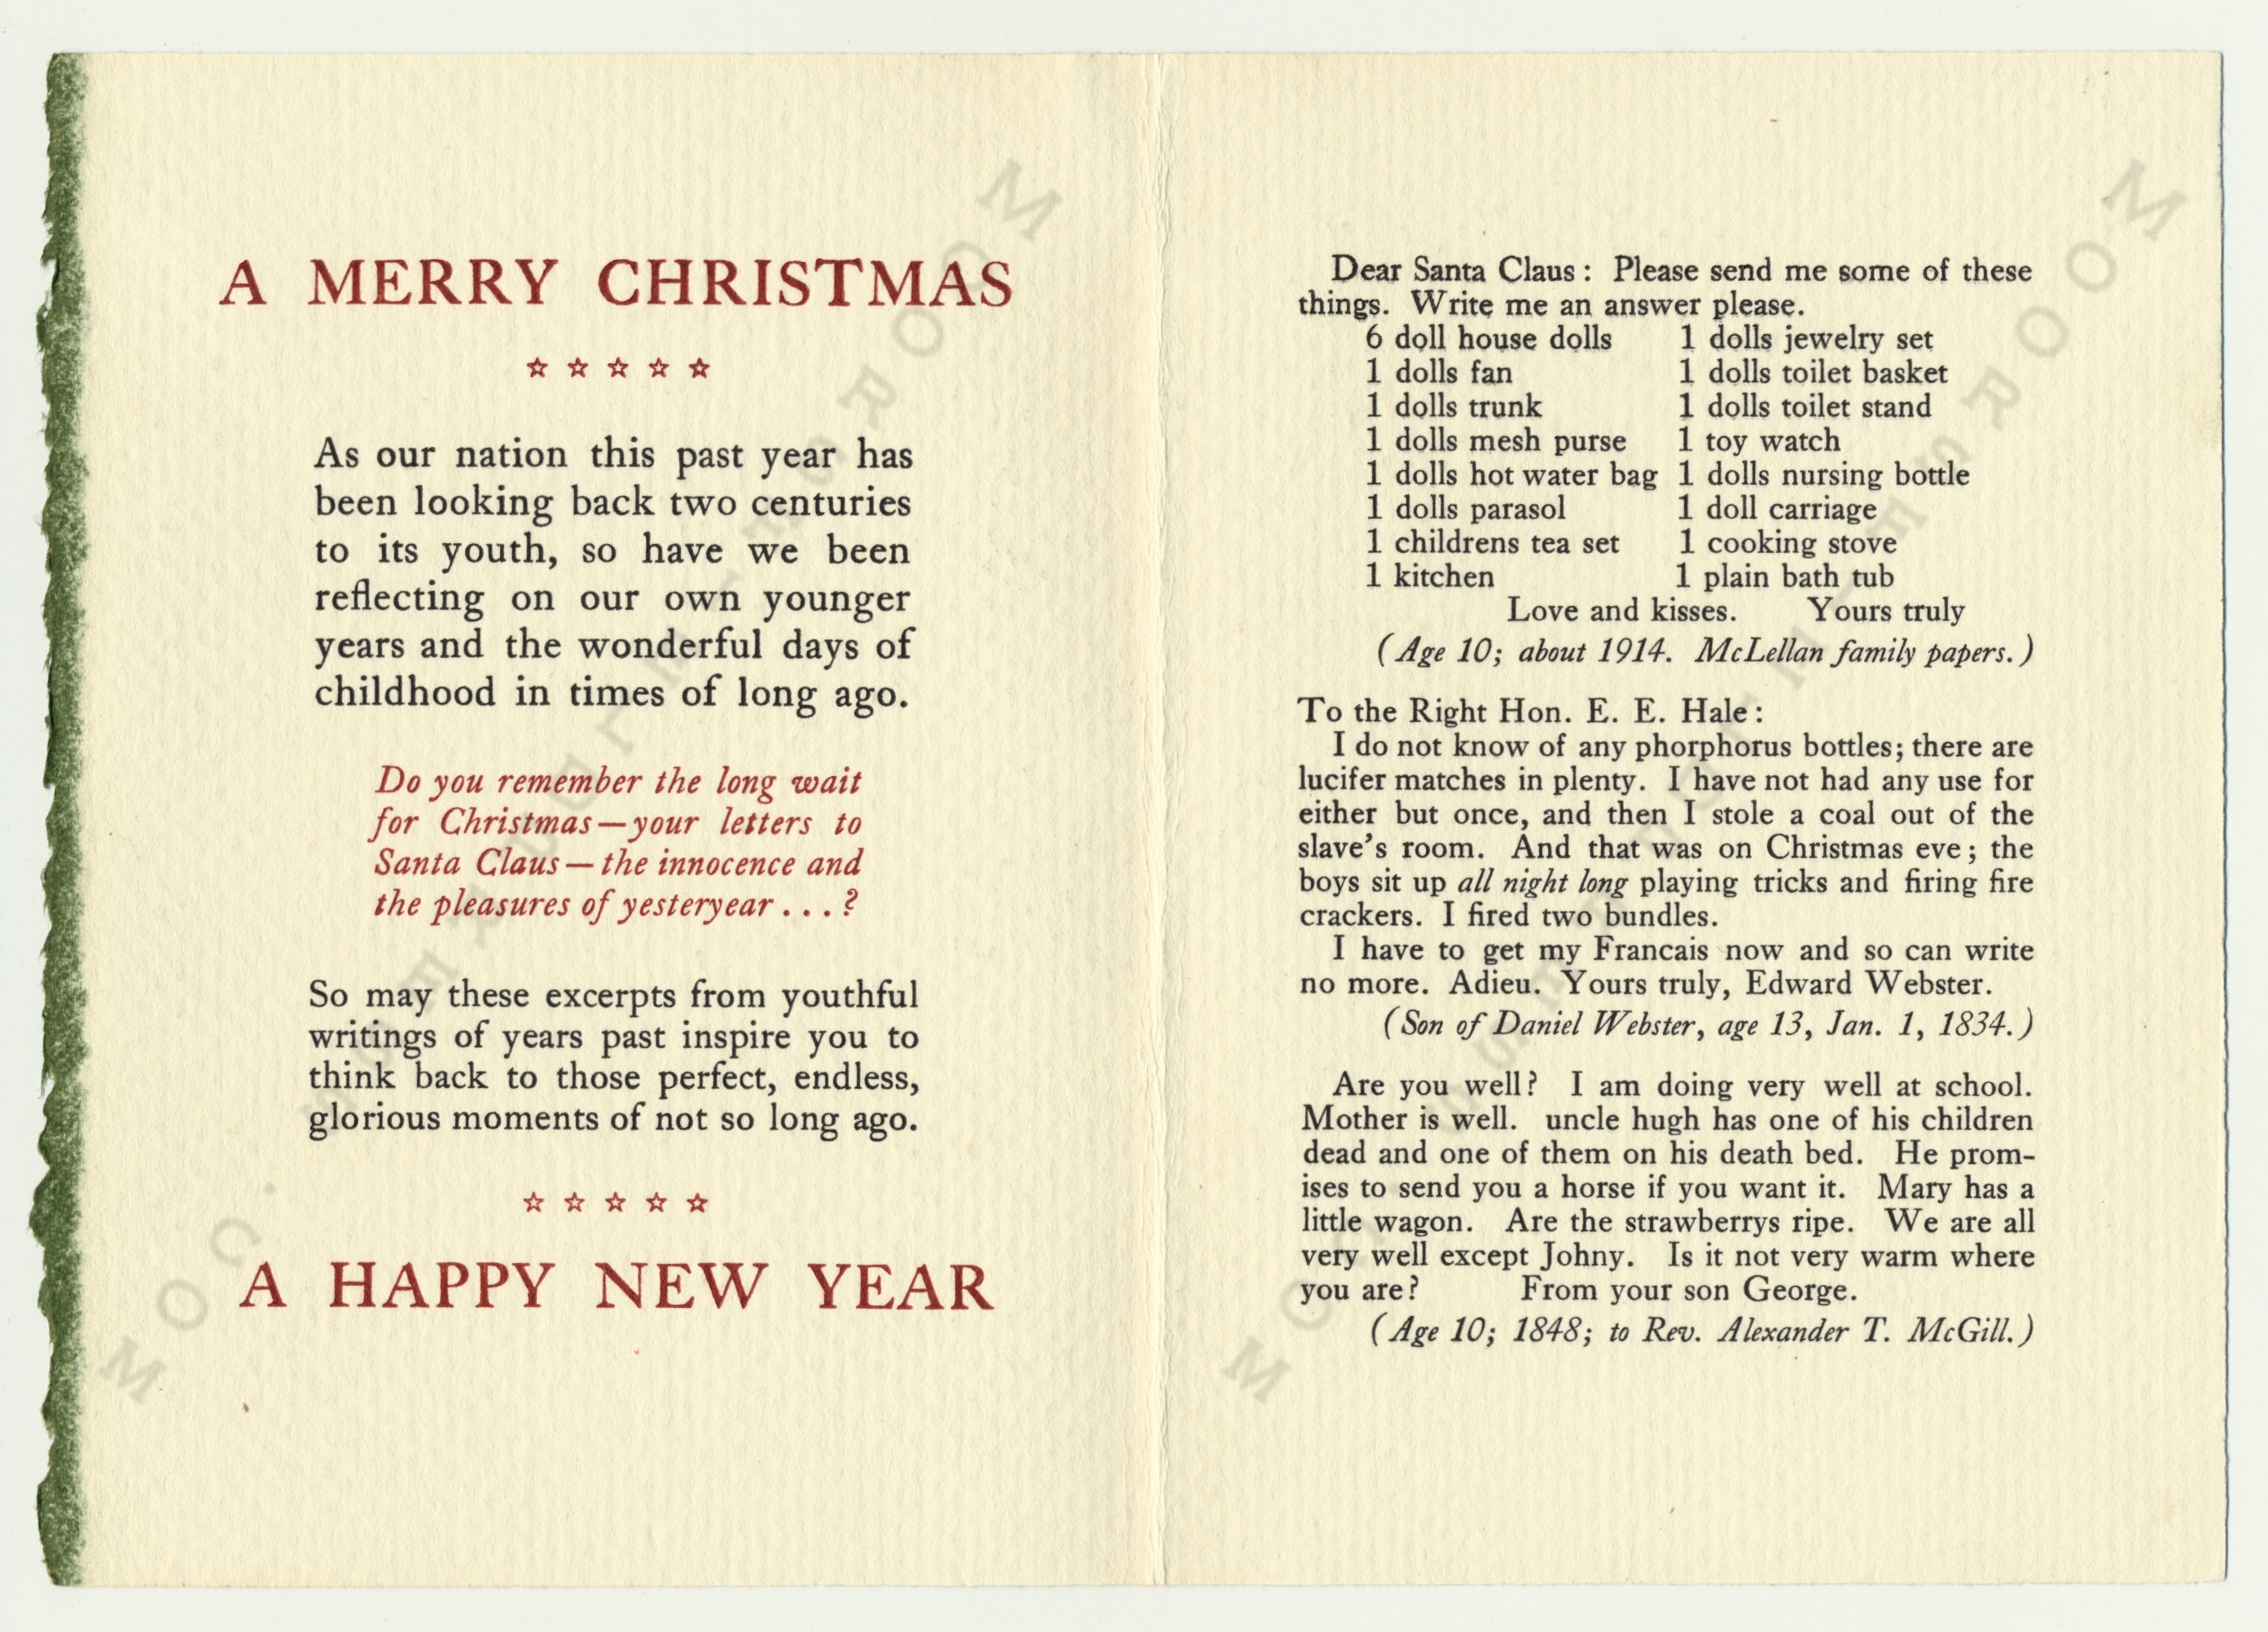 A MERRY CHRISTMAS
☆ ☆ ☆ ☆ ☆
As our nation this past year has
been looking back two centuries
to its youth, so have we been
reflecting on our own younger
years and the wonderful days of
childhood in times of long ago.
Do you remember the long wait
for Christmas—your letters to
Santa Claus—the innocence and
the pleasures of yesteryear . . . ?
So may these excerpts from youthful
writings of years past inspire you to
think back to those perfect, endless,
glorious moments of not so long ago.
☆ ☆ ☆ ☆ ☆
A HAPPY NEW YEAR
Dear Santa Claus: Please send me some of these
things. Write me an answer please.
6 doll house dolls 1 dolls jewelry set
1 dolls fan 1 dolls toilet basket
1 dolls trunk 1 dolls toilet stand
1 dolls mesh purse 1 toy watch
1 dolls hot water bag 1 dolls nursing bottle
1 dolls parasol 1 doll carriage
1 childrens tea set 1 cooking stove
1 kitchen 1 plain bath tub
Love and kisses. Yours truly
(Age 10; about 1914. McLellan family papers.)
To the Right Hon. E. E. Hale:
I do not know of any phorphorus bottles; there are
lucifer matches in plenty. I have not had any use for
either but once, and then I stole a coal out of the
slave's room. And that was on Christmas eve; the
boys sit up all night long playing tricks and firing fire
crackers. I fired two bundles.
I have to get my Francais now and so can write
no more. Adieu. Yours truly, Edward Webster.
(Son of Daniel Webster, age 13, Jan. 1, 1834.)
Are you well? I am doing very well at school.
Mother is well. uncle hugh has one of his children
dead and one of them on his death bed. He prom-
ises to send you a horse if you want it. Mary has a
little wagon. Are the strawberrys ripe. We are all
very well except Johny. Is it not very warm where
you are? From your son George.
(Age 10; 1848; to Rev. Alexander T. McGill.)